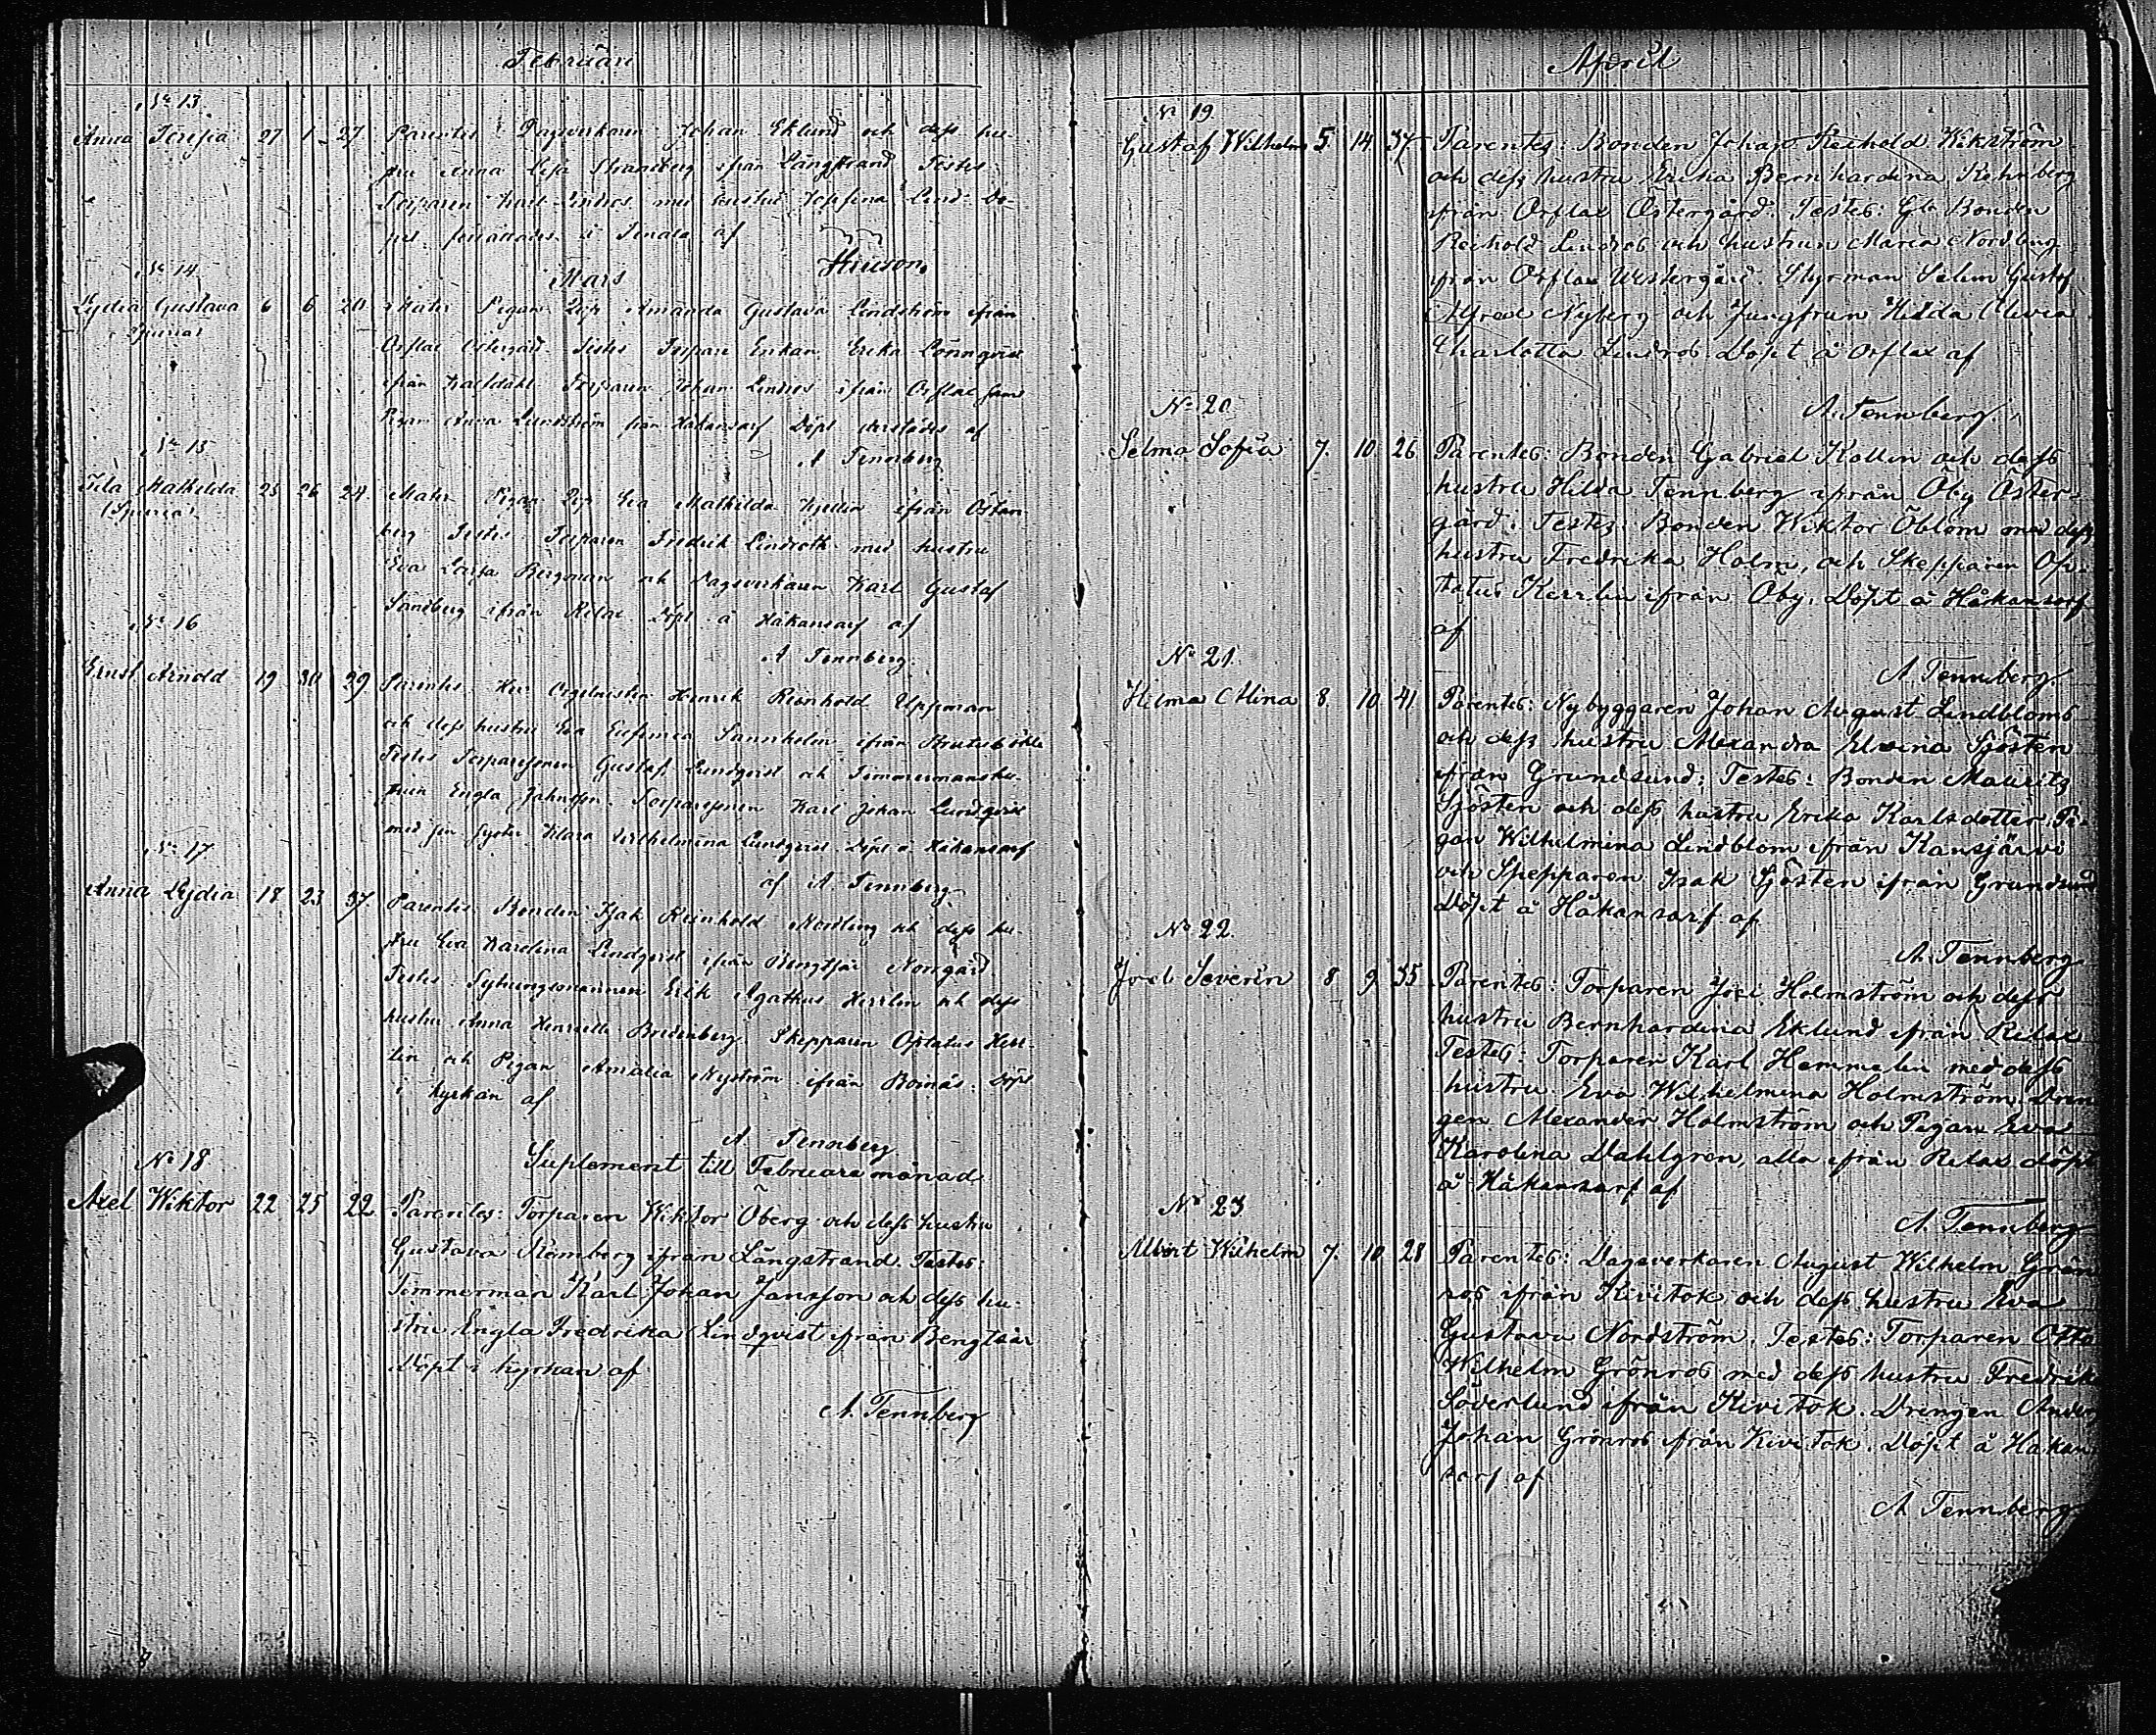 Februari
No 13
Anna Teresia 27 1 27 Parentes Dagsverkaren Johan Eklund och dess hu-
stru Anna Lisa Strandberg ifrån Långstrand Testes
Torparen Karl Lindros med hustru Josefina Lind. Dö-
pet förrättades i Tenala af
Hinson.
Mars
No 14
Lydia Gustava 6 6 20 Mater Pigan Amanda Gustava Lindström ifrån
(Spuria)
Orflax Östergård Testes Torpare Enkan Erika Lönnqvist
ifrån Torparen Johan Lindros ifrån Orflax samt
Pigan Anna Lundström från Håkansarf Döpt derstädes af
A Tennberg
No 15
Ida Mathilda 25 26 24 Mater Pigan Eva Mathilda ifrån Östan-
(Spuria)
berg Testes Torparen Fredrik Lindroth med hustru
Eva Lovisa Bergman och Dagsverkaren Karl Gustaf
Sandberg ifrån Relax Döpt å Håkansarf af
A Tennberg.
No 16
Ernst Arnold 19 30 29 Parentes Herr Orgelnisten Henrik Reinhold Uppman
och dess hustru Eva Eufemia Sannholm ifrån
Testes Torparesonen Gustaf Lundqvist och Timmermanshu-
strun Engla Jahnsson. Torparesonen Karl Johan Lundqvist
med sin Syster Klara Wilhelmina Lundqvist. Döpt å Håkansarf
af A. Tennberg
No 17
Anna Lydia 18 23 37 Parentes Bonden Isak Reinhold Nordling och dess hu-
stru Eva Karolina Lindqvist ifrån Bengtsår Norrgård
Testes Sytningsmannen Erik Agathus Herrlin och dess
hustru Anna Henriette Bredenberg. Skepparen Optatus Herr-
lin och Pigan Amalia Nyström ifrån Boinäs. Döpt
i kyrkan af
A Tennberg
Suplement till Februari månad
No 18
Axel Wiktor 22 25 22 Parentes: Torparen Wiktor Öberg och dess hustru
Gustava Romberg ifrån Långstrand. Testes:
Timmerman Karl Johan Jansson och dess hu-
stru Engla Fredrika Lindqvist ifrån Bengtsår
Döpt i kyrkan af
A. Tennberg
April
No 19
Gustaf Wilhelm 5. 14 37 Parentes: Bonden Johan Reihold Wikström
och dess hustru Erika Bernhardina Rehnberg
ifrån Orflax Östergård. Testes: Gla Bonden
Reihold Lindros och hustrun Maria Nordberg
ifrån Orflax Westergård. Styrman Selim Gustaf
Alfred Nyberg och Jungfrun Hilda Olivia
Charlotta Lindros Döpt å Orflax af
A. Tennberg.
No 20
Selma Sofia 7. 10 26 Parentes: Bonden Gabriel Kollin och dess
hustru Hilda Tennberg ifrån Öby Öster-
gård. Testes: Bonden Wiktor Öblom med dess
hustru Fredrika Holm, och Skepparen Op-
tatus Herrlin ifrån Öby. Döpt å Håkansarf
af
A Tennberg.
No 21.
Hilma Alina 8. 10 41 Parentes: Nybyggaren Johan August Lindblom
och dess hustru Alexandra Elvina Sjösten
ifrån Grundsund; Testes: Bonden Mauritz
Sjösten och dess hustru Erika Karlsdotter. Pi-
gan Wilhelmina Lindblom ifrån Kansjärvi
och Skepparen Isak Sjösten ifrån Grundsund
Döpt å Håkansarf af
A. Tennberg
No 22.
Joel Severin 8 9 35 Parentes: Torparen Joel Holmström och dess
hustru Bernhardina Eklund ifrån Relax
Testes: Torparen Karl Hemmelin med dess
hustru Eva Wilhelmina Holmström. Dren
gen Alexander Holmström och Pigan Eva
Karolina Dahlgren, alla ifrån Relax döpt
å Håkansarf af
A. Tennberg
No 23
Albert Wilhelm 7. 10 28 Parentes: Dagsverkaren August Wilhelm Grön
ros ifrån Kivitok och dess hustru Eva
Gustava Nordström. Testes: Torparen Otto
Wilhelm Grönros med dess hustru Fredrika
Söderlund ifrån Kivitok. Drengen Anders
Johan Grönros ifrån Kivitok. Döpt å Håkan
sarf af
A Tennberg